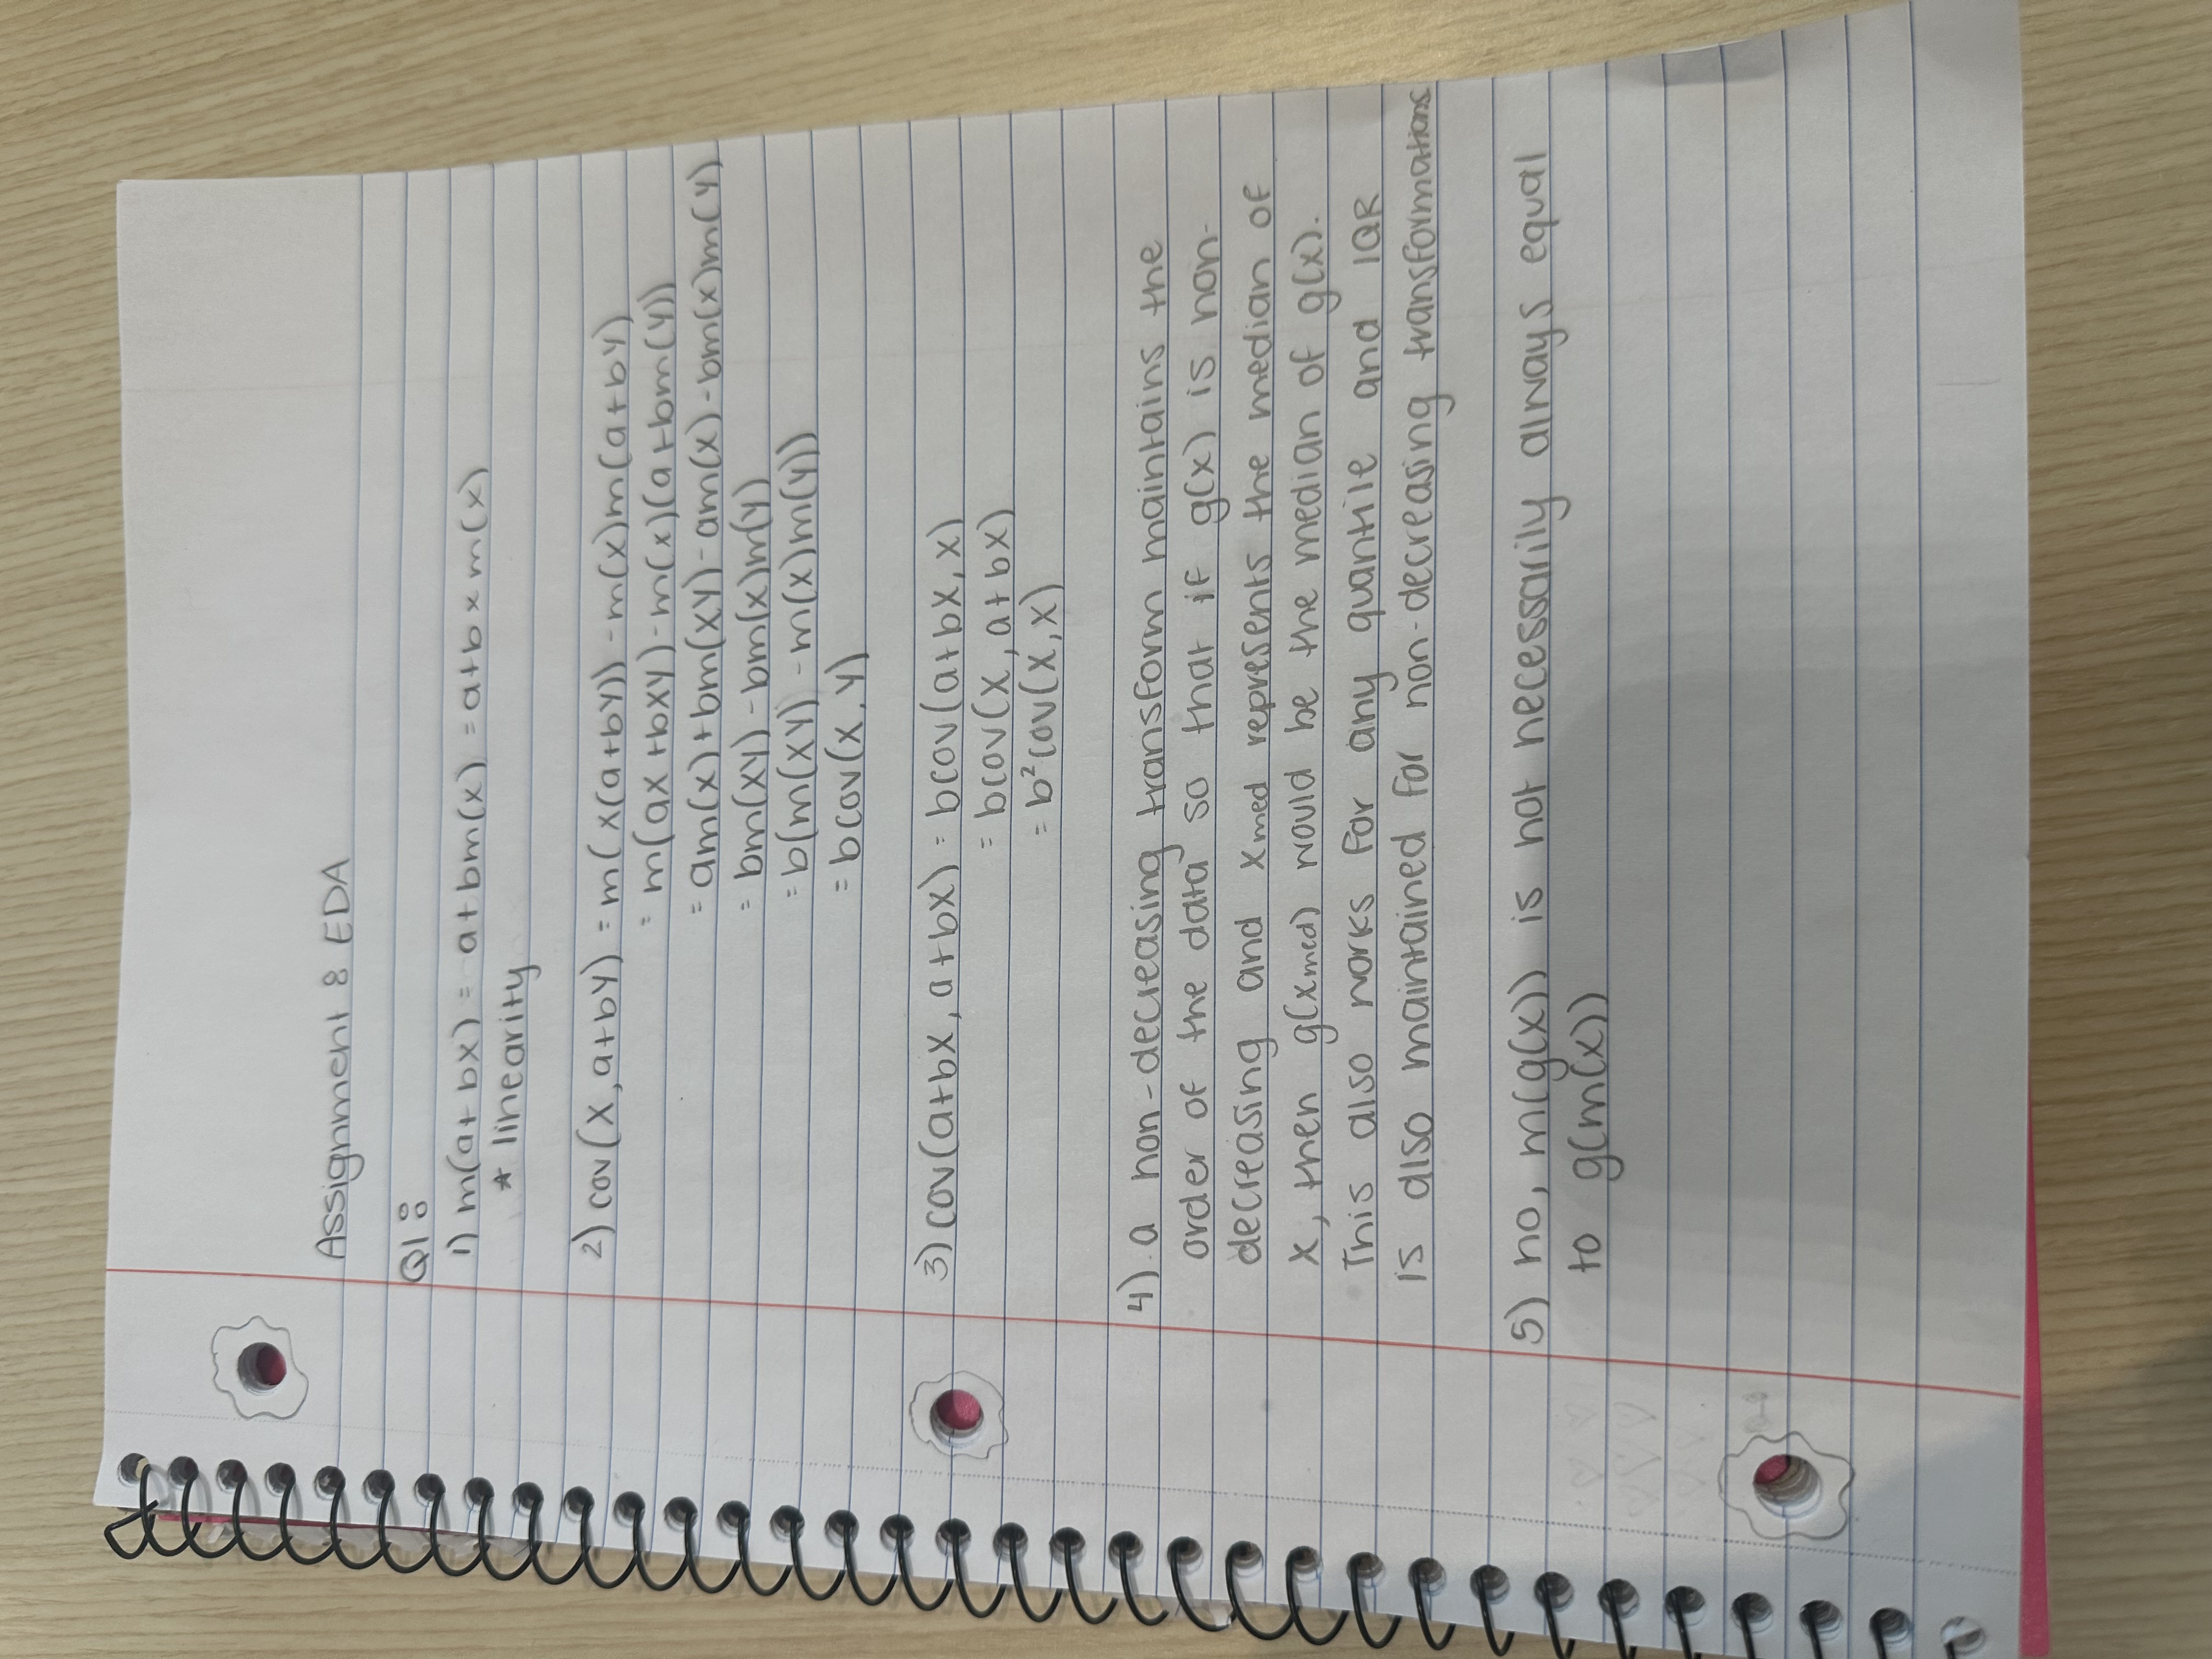 Assignment 8 EDA
Q1:
1) m(a+bX) = a+bm(x) = a+b × m(x)
* linearity
2) cov(X, a+bY) = m(x(a+bY)) - m(x)m(a+bY)
= m(aX+bXY) - m(x)(a+bm(Y))
= am(X)+bm(XY)-am(X)-bm(x)m(Y)
= bm(XY) - bm(x)m(Y)
= b(m(XY) - m(x)m(Y))
= bcov(X,Y)
3) cov(a+bX, a+bX) = bcov(a+bX, X)
= bcov(X, a+bX)
= b²cov(X,X)
4) a non-decreasing transform maintains the
order of the data so that if g(x) is non-
decreasing and xmed represents the median of
X, then g(xmed) would be the median of g(x).
This also works for any quantile and IQR
is also maintained for non-decreasing transformations
5) no, m(g(x)) is not necessarily always equal
to g(m(x))